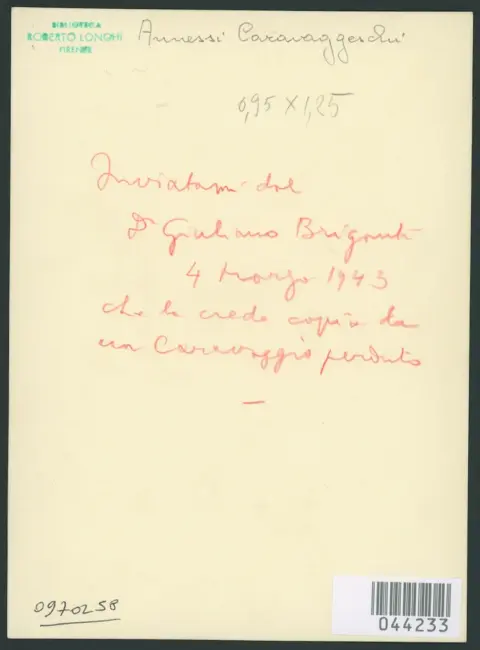 BIBLIOTECA
ROBERTO LONGHI
FIRENZE
Annessi Caravaggeschi
0,95 X 1,25
Inviatami dal
Dr Giuliano Briganti
4 Marzo 1943
che la crede copia da
un Caravaggio perduto
—
0970258
044233